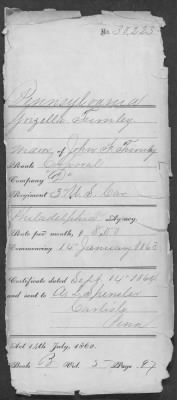 No. 38,223
Pennsylvania
Gozella Trimley
Widow of John F. Trimley
Rank Corporal
Company "G"
Regiment 3rd U.S. Cav
Philadelphia Agency.
Rate per month, $ 8.00
Commencing 14 January 1863
Certificate dated Sept. 14 1864
and sent to A. L. Sponsler
Carlisle
Penn
Act 14th July, 1860.
Book B Vol. 5 Page 97